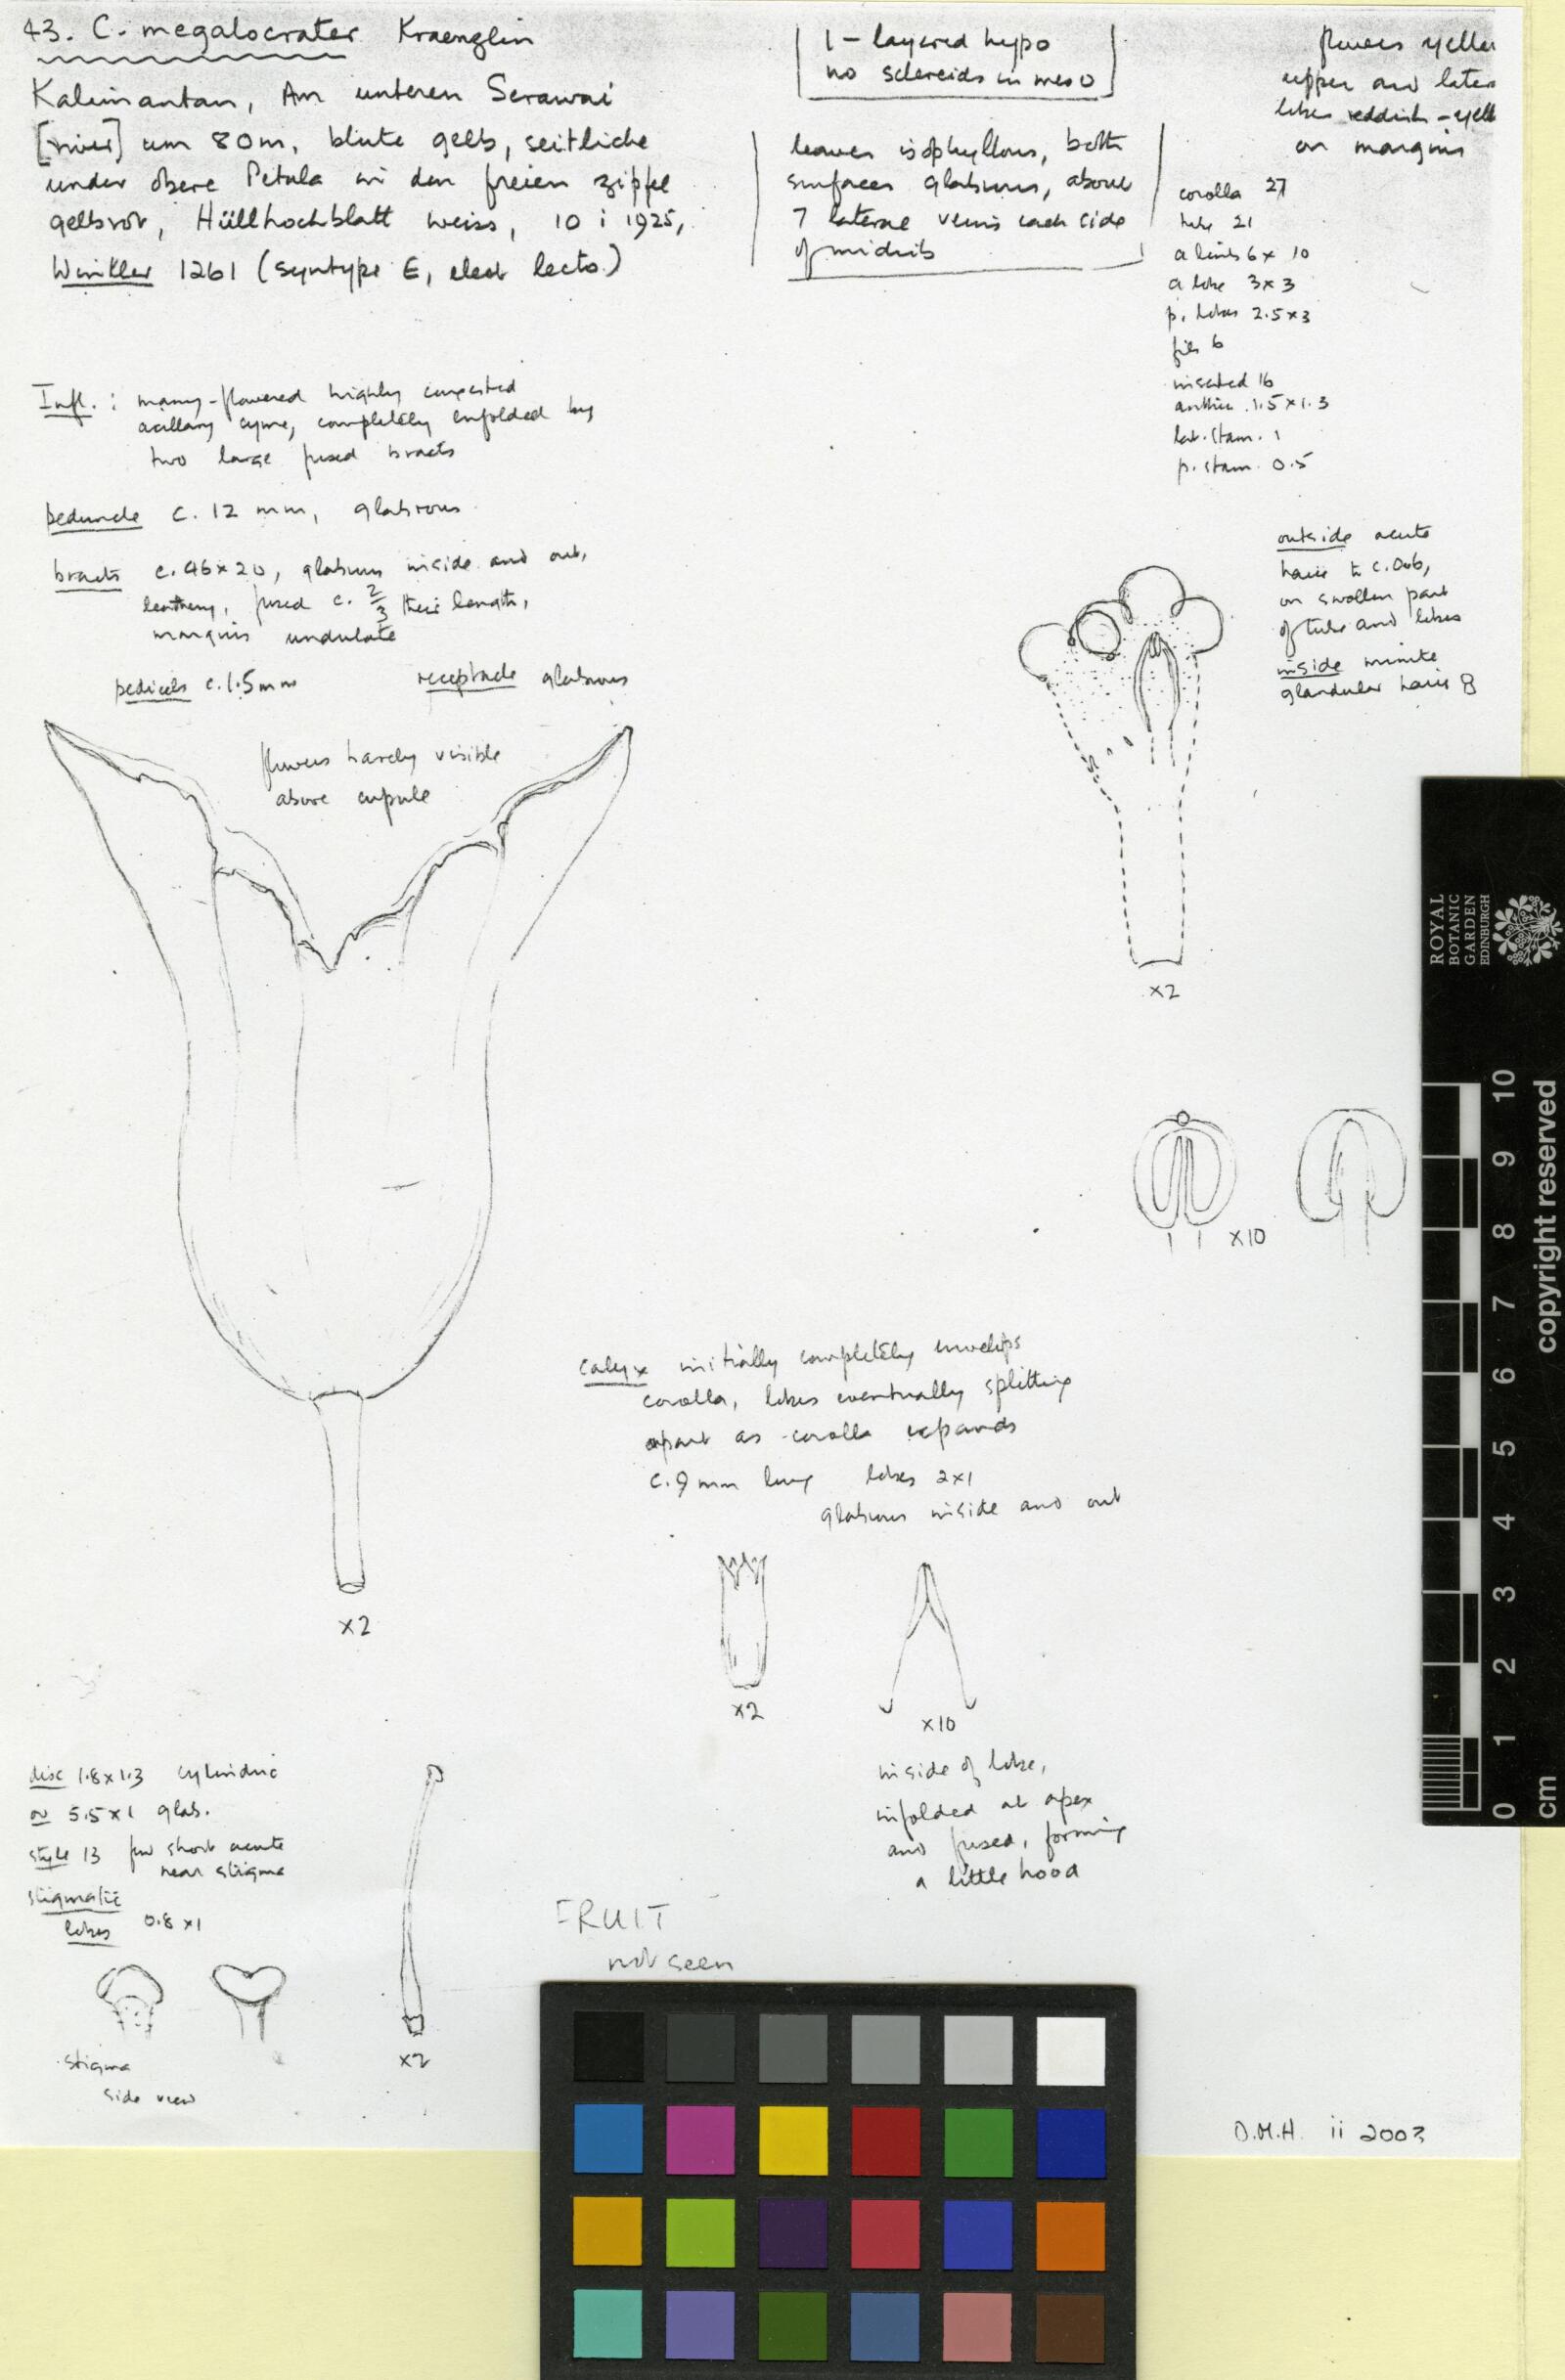 43. C. megalocrater Kraenzlin
Kalimantan, Am unteren Serawai
[river] um 80m, blute gelb, seitliche
under obere Petala in den freien zipfel
gelbrot, Hüllhochblatt weiss, 10 i 1925,
Winkler 1261 (syntype E, elect lecto.)
1-layered hypo
no sclereids in meso
leaves isophyllous, both
surfaces glabrous, about
7 lateral veins each side
of midrib
flowers yellow
upper and later
lobes reddish-yell
on margins
corolla 27
tube 21
a limb 6 x 10
a lobe 3x3
p. lobes 2.5x3
fils 6
inserted 16
anthers 1.5x1.3
lat. stam. 1
p. stam. 0.5
Infl.: many-flowered highly congested
axillary cyme, completely enfolded by
two large fused bracts
peduncle c. 12 mm, glabrous
bracts c. 46x20, glabrous inside and out,
leathery, fused c. 2/3 their length,
margins undulate
pedicels c. 1.5mm
receptacle glabrous
flowers barely visible
above cupule
x2
outside acute
hairs to c.
on swollen part
of tube and lobes
inside minute
glandular hairs
x2
x10
calyx initially completely envelops
corolla, lobes eventually splitting
apart as corolla expands
c. 9 mm long lobes 2x1
glabrous inside and out
x2
x10
inside of lobe,
infolded at apex
and fused, forming
a little hood
disc 1.8x1.3 cylindric
ov 5.5x1 glab.
style 13 few short acute
near stigma
stigmatic
lobes 0.8 x1
stigma
side view
x2
FRUIT
not seen
D.M.H. ii 2003
ROYAL
BOTANIC
GARDEN
EDINBURGH
10
9
8
7
6
5
4
3
2
1
0
cm
copyright reserved